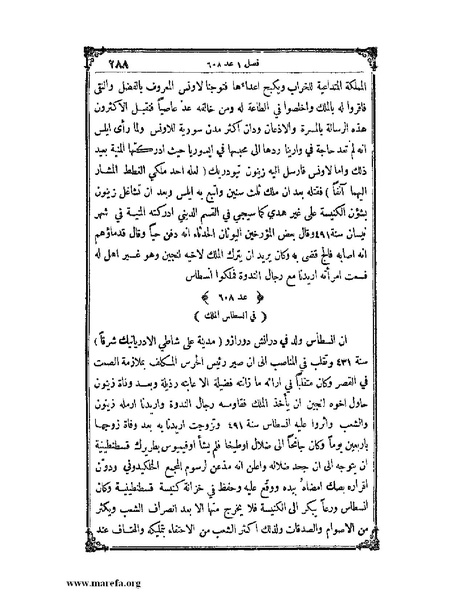 فصل ١ عد ٦٠٨
٢٨٨
المملكة المتداعية للخراب ويكبح اعداءها فتوجنا لاونس المعروف بالفضل والتقى
فاقروا له بالملك واخلصوا في الطاعة له ومن خالفه عد عاصياً فتقبل الأكثرون
هذه الرسالة بالمسرة والاذعان ودان اكثر مدن سورية للاونس ولما رأى ايلس
انه لم تعد حاجة في وارينا ردها الى محبسها في ايسوريا حيث ادركتها المنية بعيد
ذلك واما لاونس فارسل اليه زينون تيودريك ( لعله احد ملكي القطط المشار
اليهما آنفاً ) فقتله بعد ان ملك ثلث سنين واتبع به ايلس وبعد ان تشاغل زينون
بشؤن الكنيسة على غير هدى كما سيجي في القسم الديني ادركته المنية في شهر
نيسان سنة ٤٩١ وقال بعض المؤرخين اليونان المحدثاء انه دفن حياً وقال قدماؤهم
انه اصابه فالج قضى به وكان يريد ان يترك الملك لاخيه لنجين وهو غير اهل له
فسمت امرأته اريدنا مع رجال الندوة فملكوا انسطاس
﴿ عد ٦٠٨ ﴾
( في انسطاس الملك )
ان انسطاس ولد في درانش دورازو ( مدينة على شاطي الادرياتيك شرقاً )
سنة ٤٣١ وتقلب في المناصب الى ان صير رئيس الحرس المكلف بملازمة الصمت
في القصر وكان متقلباً في ارائه ما زانته فضيلة الا عابته رذيلة وبعد وفاة زينون
حاول اخوه لنجين ان يأخذ الملك فقاومه رجال الندوة واريدنا ارملة زينون
والشعب واثروا عليه انسطاس سنة ٤٩١ وتزوجت اريدنا به بعد وفاة زوجها
باربعين يوماً وكان جانحاً الى ضلال اوطيخا فلم يشأ اوفيميوس بطريرك قسطنطينية
ان يتوجه الى ان جحد ضلاله واعلن انه مذعن لرسوم المجمع الخلكيدوني ودوّن
اقراره بصك امضاه بيده ووقع عليه وحفظ في خزانة كنيسة قسطنطينية وكان
انسطاس ورعاً يبكر الى الكنيسة فلا يخرج منها الا بعد انصراف الشعب ويكثر
من الاصوام والصدقات ولذلك اكثر الشعب من الاحتفاء بتمليكه والهتاف عند
www.marefa.org